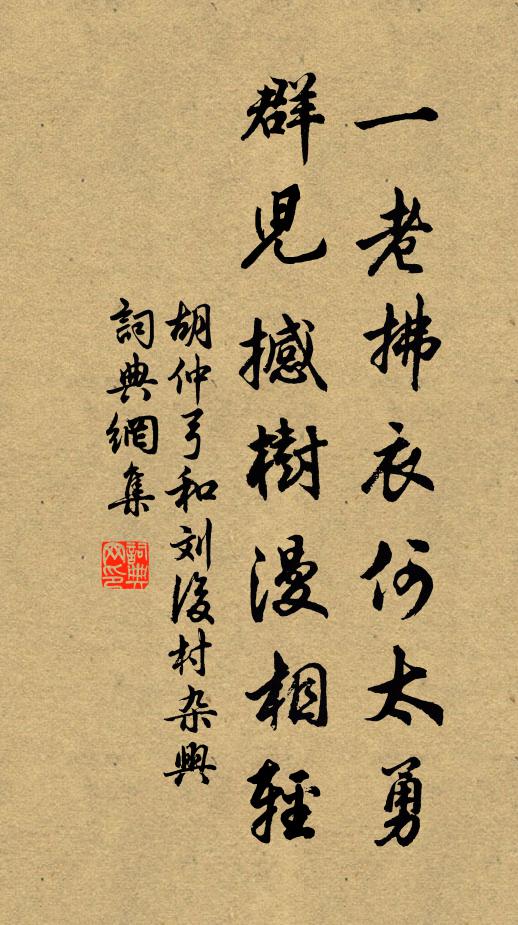 一老拂衣何太勇
群児撼樹漫相輕
胡仲弓和刘後村杂興
詞典網集
詞典
网印